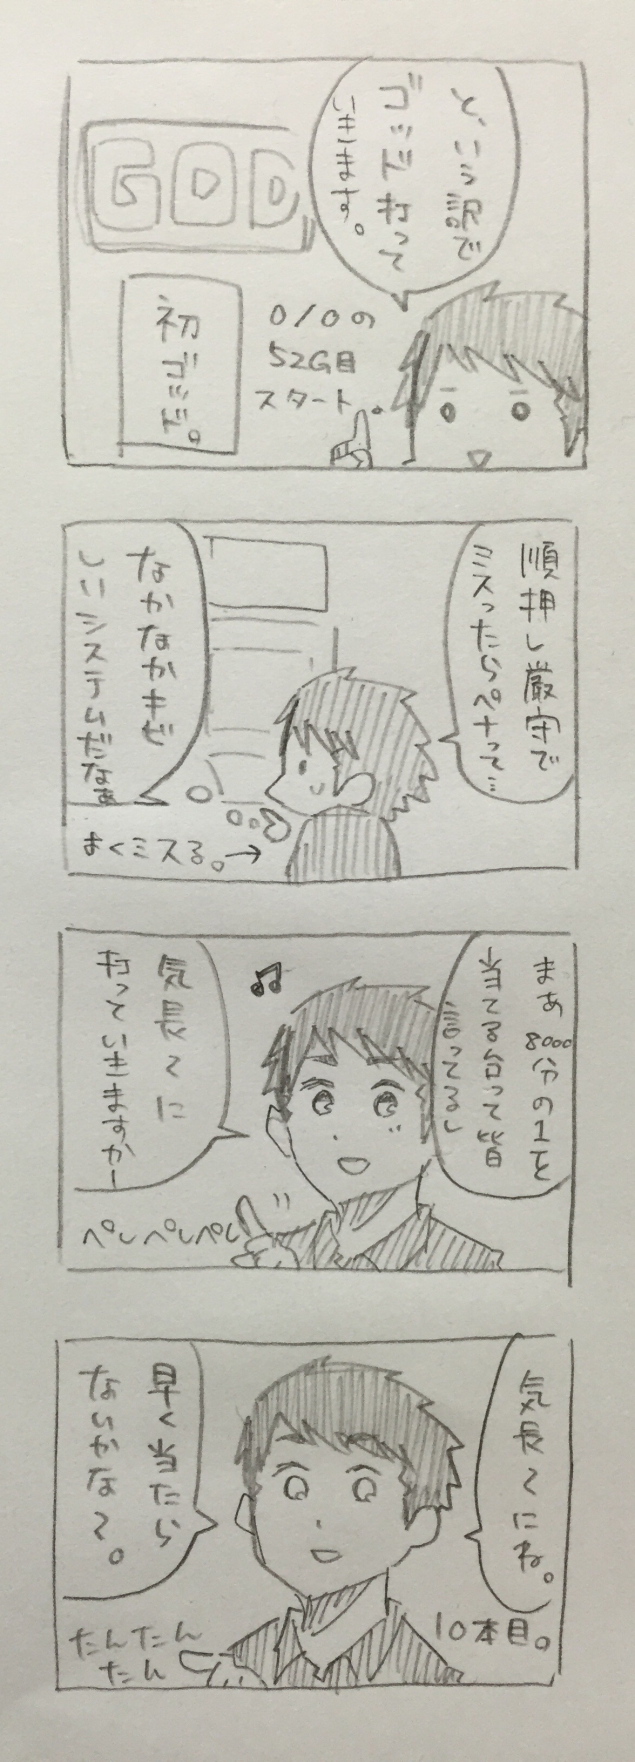 と、いう訳で
ゴッド打って
いきます。
GOD
0/0の
52G目
スタート。
初ゴッド。
順押し厳守で
ミスったらペナって…
なかなかキビ
しいシステムだなぁ
よくミスる。→
まあ8000分の1を
当てる台って皆
言ってるし
気長〜に
打っていきますか〜
ペしペしペし
気長〜にね。
早く当たら
ないかな〜。
10本目。
たんたん
たん